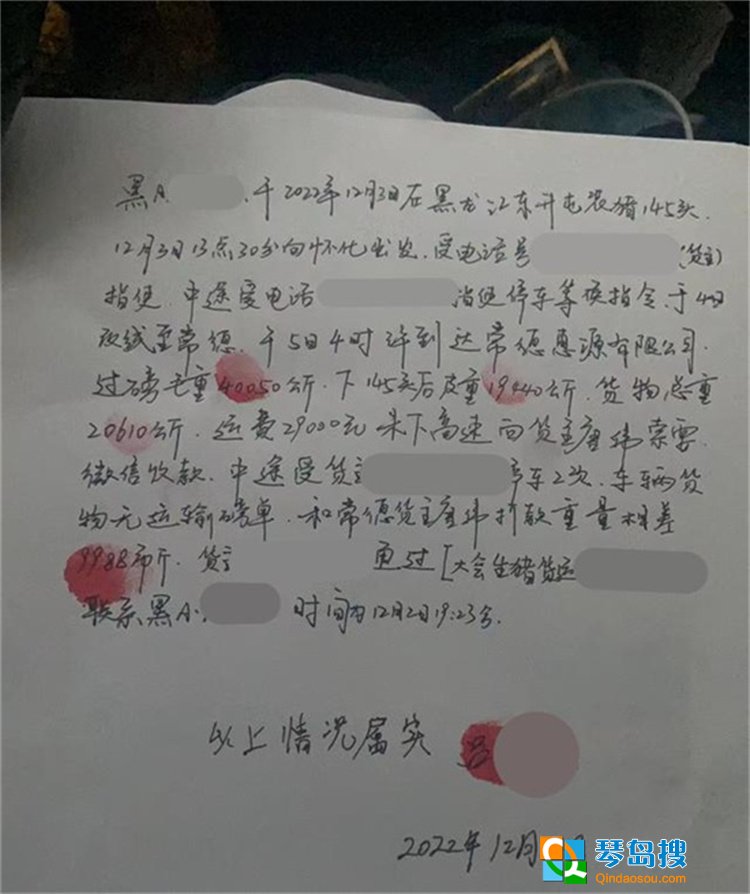 黑A 于2022年12月3日在黑龙江东升屯装猪145头.
12月3日13点30分向怀化出发.受电话号 (货主)
指使.中途受电话 指使停车等候指令.于4日
夜线至常德.于5日4时许到达常德惠源有限公司.
过磅毛重40050公斤.下145头后皮重19440公斤.货物总重
20610公斤.运费29000元 未下高速向货主 索要.
微信收款.中途受货主 停车2次.车辆货
物无运输磅单.和常德货主 重量相差
9988市斤.货主 通过[大会生猪货运
联系黑A. 时间为12月2日19:23分.
以上情况属实 吕
2022年12月
琴岛搜
Qindaosou.com